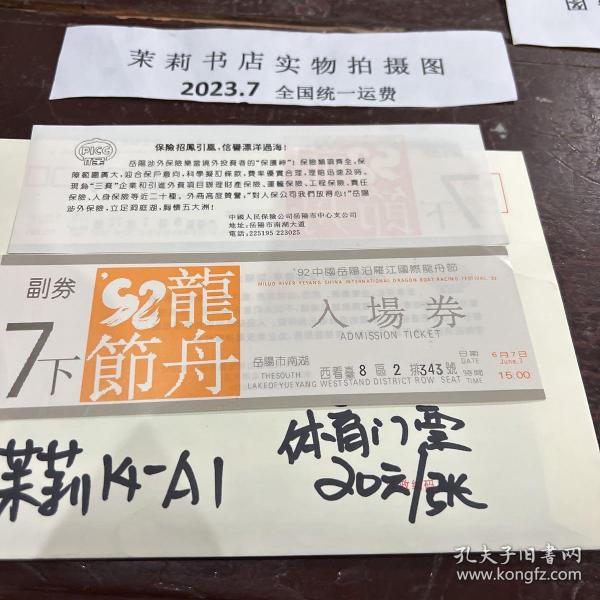 茉莉书店实物拍摄图
2023.7 全国统一运费
图
PICC
保險招鳳引凰，信譽漂洋過海！
岳陽涉外保險樂當境外投資者的“保護神”！保險類項齊全，保
障範圍廣大，迎合保戶意向，科學擬訂條款，費率優實合理，理賠迅速及時。
現為“三資”企業和引進外資項目辦理財產保險、運輸保險、工程保險、責任
保險、人身保險等近二十種。外商高度贊譽，“對人保公司我們放得心！”岳陽
涉外保險，立足洞庭湖，胸懷五大洲！
中國人民保險公司岳陽市中心支公司
地址：岳陽市南湖大道
電話：225195 223025
7下
副券
7下
'92
龍舟節
'92中國岳陽汨羅江國際龍舟節
MILUO RIVER YEYANG SHINA INTERNATIONAL DRAGON BOAT RACING FESTIVAL '92
入場券
ADMISSION TICKET
岳陽市南湖
THESOUTH
LAKEOFYUEYANG
西看臺8區2排343號
WESTSTAND DISTRICT ROW SEAT
日期 6月7日
DATE June.7
時間 15:00
TIME
茉莉14-A1
体育门票
20元/张
孔夫子旧书网
www.kongfz.com